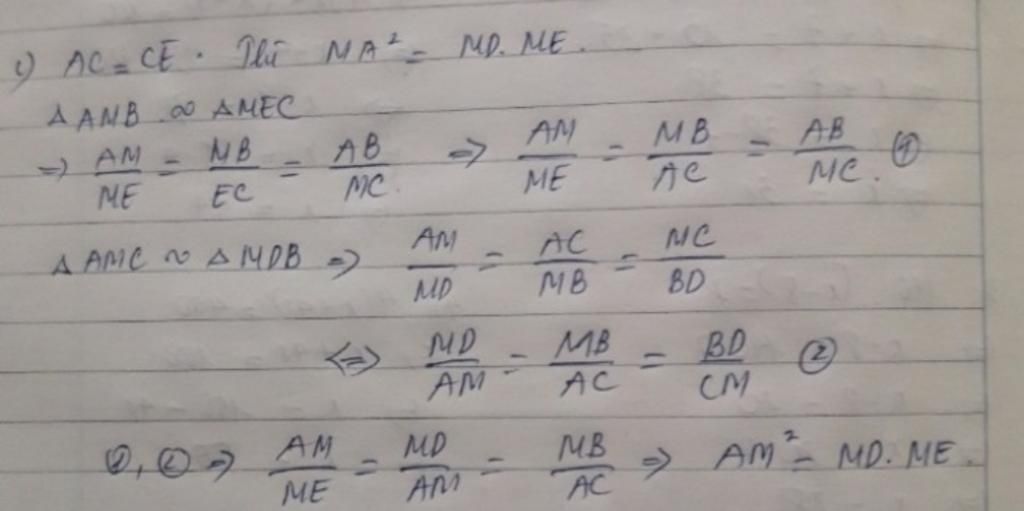 c) AC = CE. Thì MA² = MD.ME.
△AMB ∽ △MEC
⇒ AM/ME = MB/EC = AB/MC ⇒ AM/ME = MB/AC = AB/MC. ①
△AMC ∽ △MDB ⇒ AM/MD = AC/MB = MC/BD
⇔ MD/AM = MB/AC = BD/CM ②
①, ② ⇒ AM/ME = MD/AM = MB/AC ⇒ AM² = MD.ME.